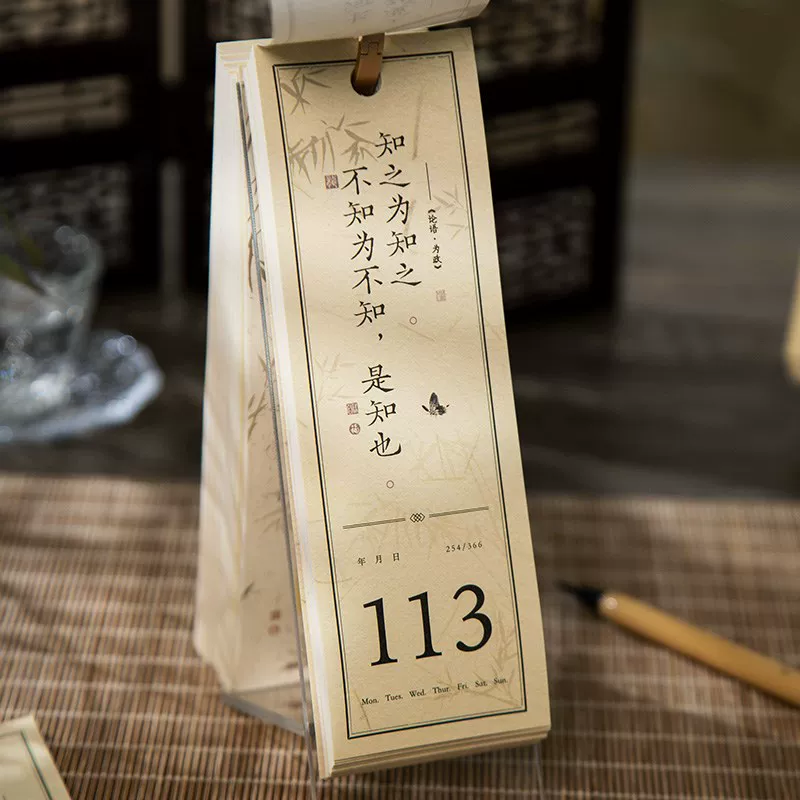 知之为知之。
不知为不知，是知也。
——《论语·为政》
年 月 日
254/366
113
Mon. Tues. Wed. Thur. Fri. Sat. Sun.